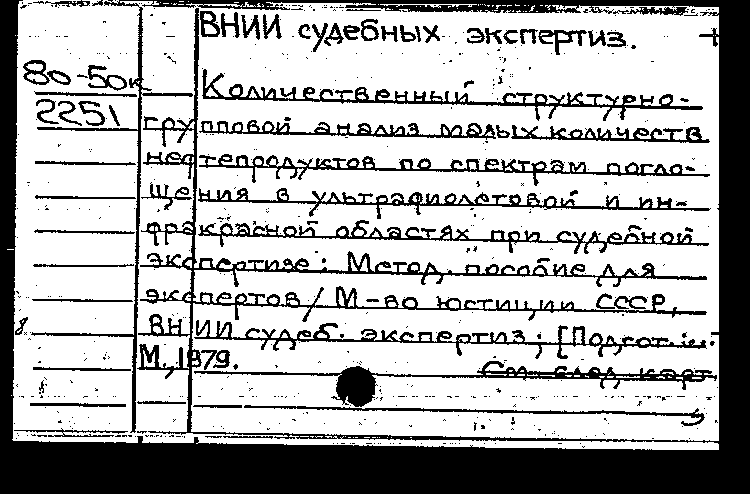 ВНИИ судебных экспертиз. +
80-50к
2251
Количественный структурно-
групповой анализ малых количеств
нефтепродуктов по спектрам погло-
щения в ультрафиолетовой и ин-
фракрасной областях при судебной
экспертизе: Метод. пособие для
экспертов / М-во юстиции СССР,
ВНИИ судеб. экспертиз; [Подгот.
М., 1979.
См. след. карт.